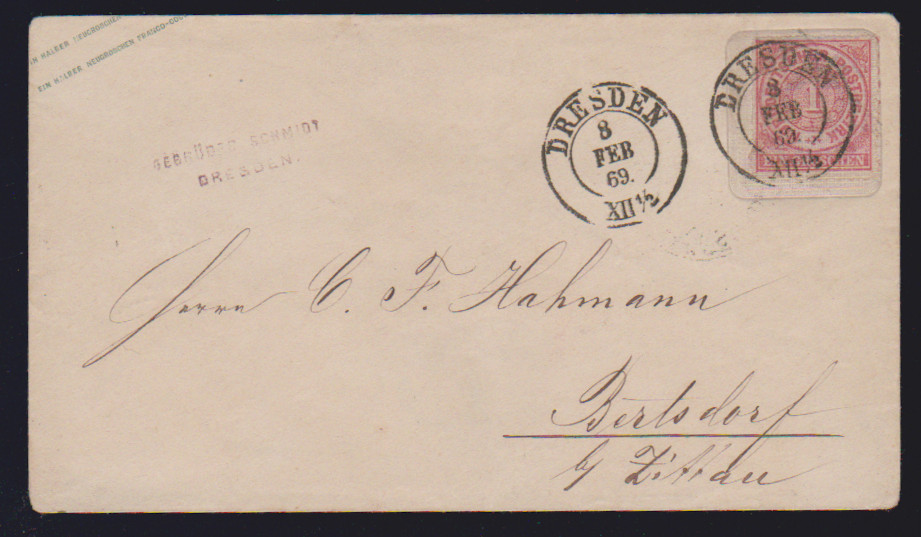 EIN HALBER NEUGROSCHEN
EIN HALBER NEUGROSCHEN FRANCO-COU
GEBRÜDER SCHMIDT
DRESDEN.
DRESDEN
8
FEB
69.
XII ½
DRESDEN
8
FEB
69.
XII ½
POSTBEZIRK
1
Herrn C. F. Hahmann
Bertsdorf
b/ Zittau